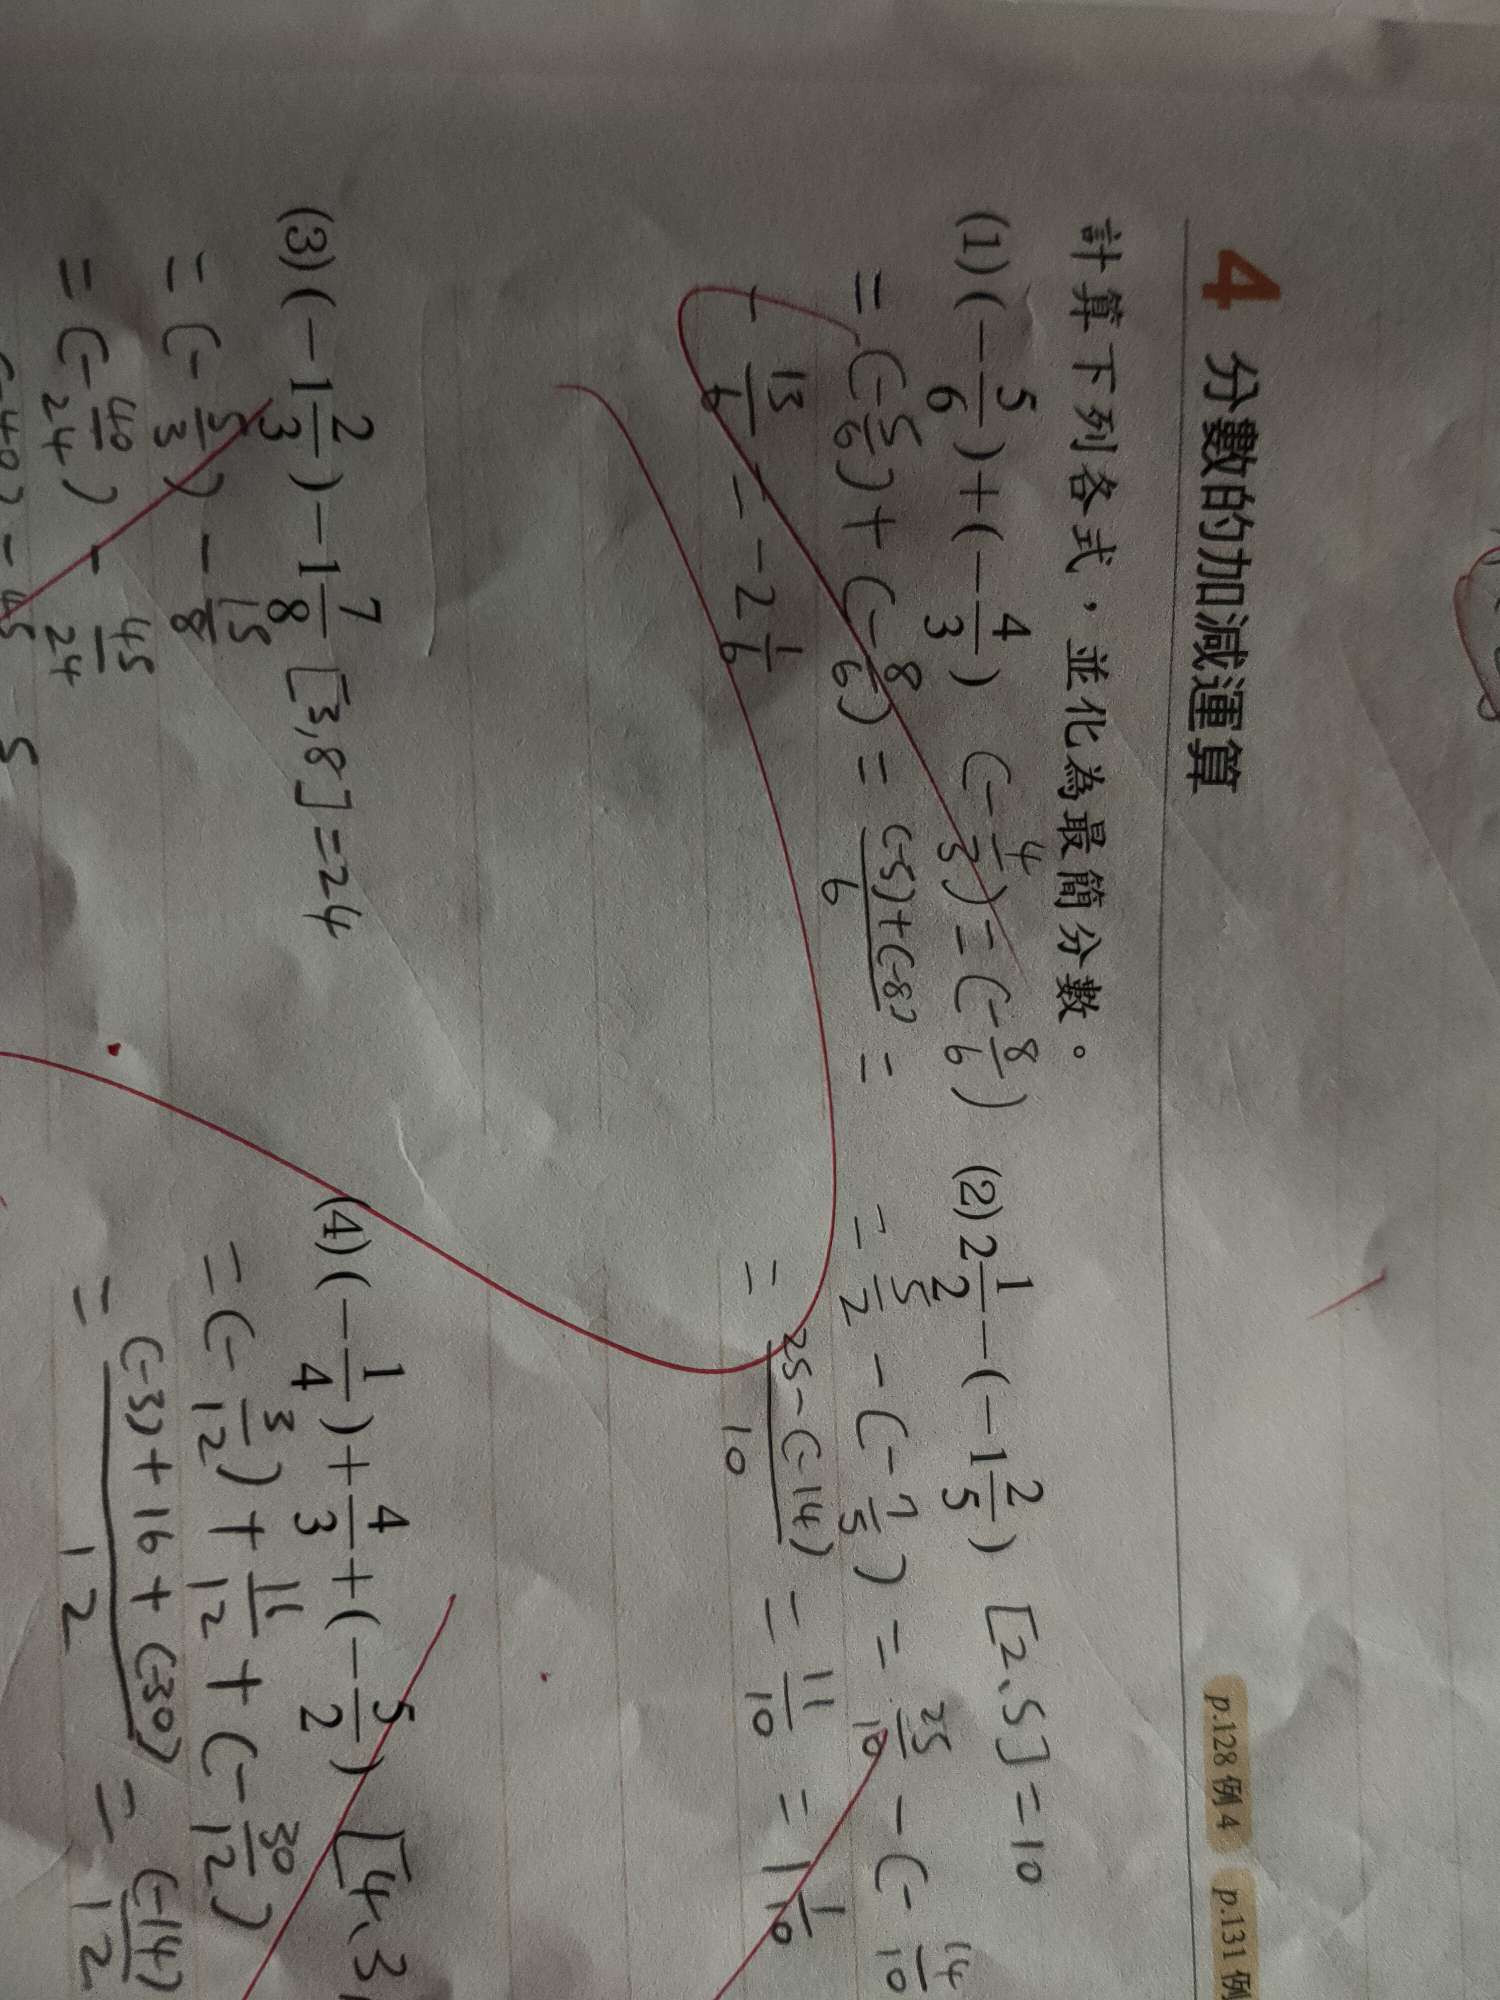 4 分數的加減運算 p.128 例4 p.131 例
計算下列各式，並化為最簡分數。
(1) (-5/6)+(-4/3) (-4/3)=(-8/6)
=(-5/6)+(-8/6)=(-5)+(-8)/6=
-13/6=-2 1/6
(2) 2 1/2-(-1 2/5) [2、5]=10
=5/2-(-7/5)=25/10-(-14/10
=25-(-14)/10=11/10=1 1/10
(3) (-1 2/3)-1 7/8 [3,8]=24
=(-5/3)-15/8
=(-40/24)-45/24
(-40)-45
(4) (-1/4)+4/3+(-5/2) [4、3
=(-3/12)+16/12+(-30/12)
=(-3)+16+(-30)/12=(-14)/12